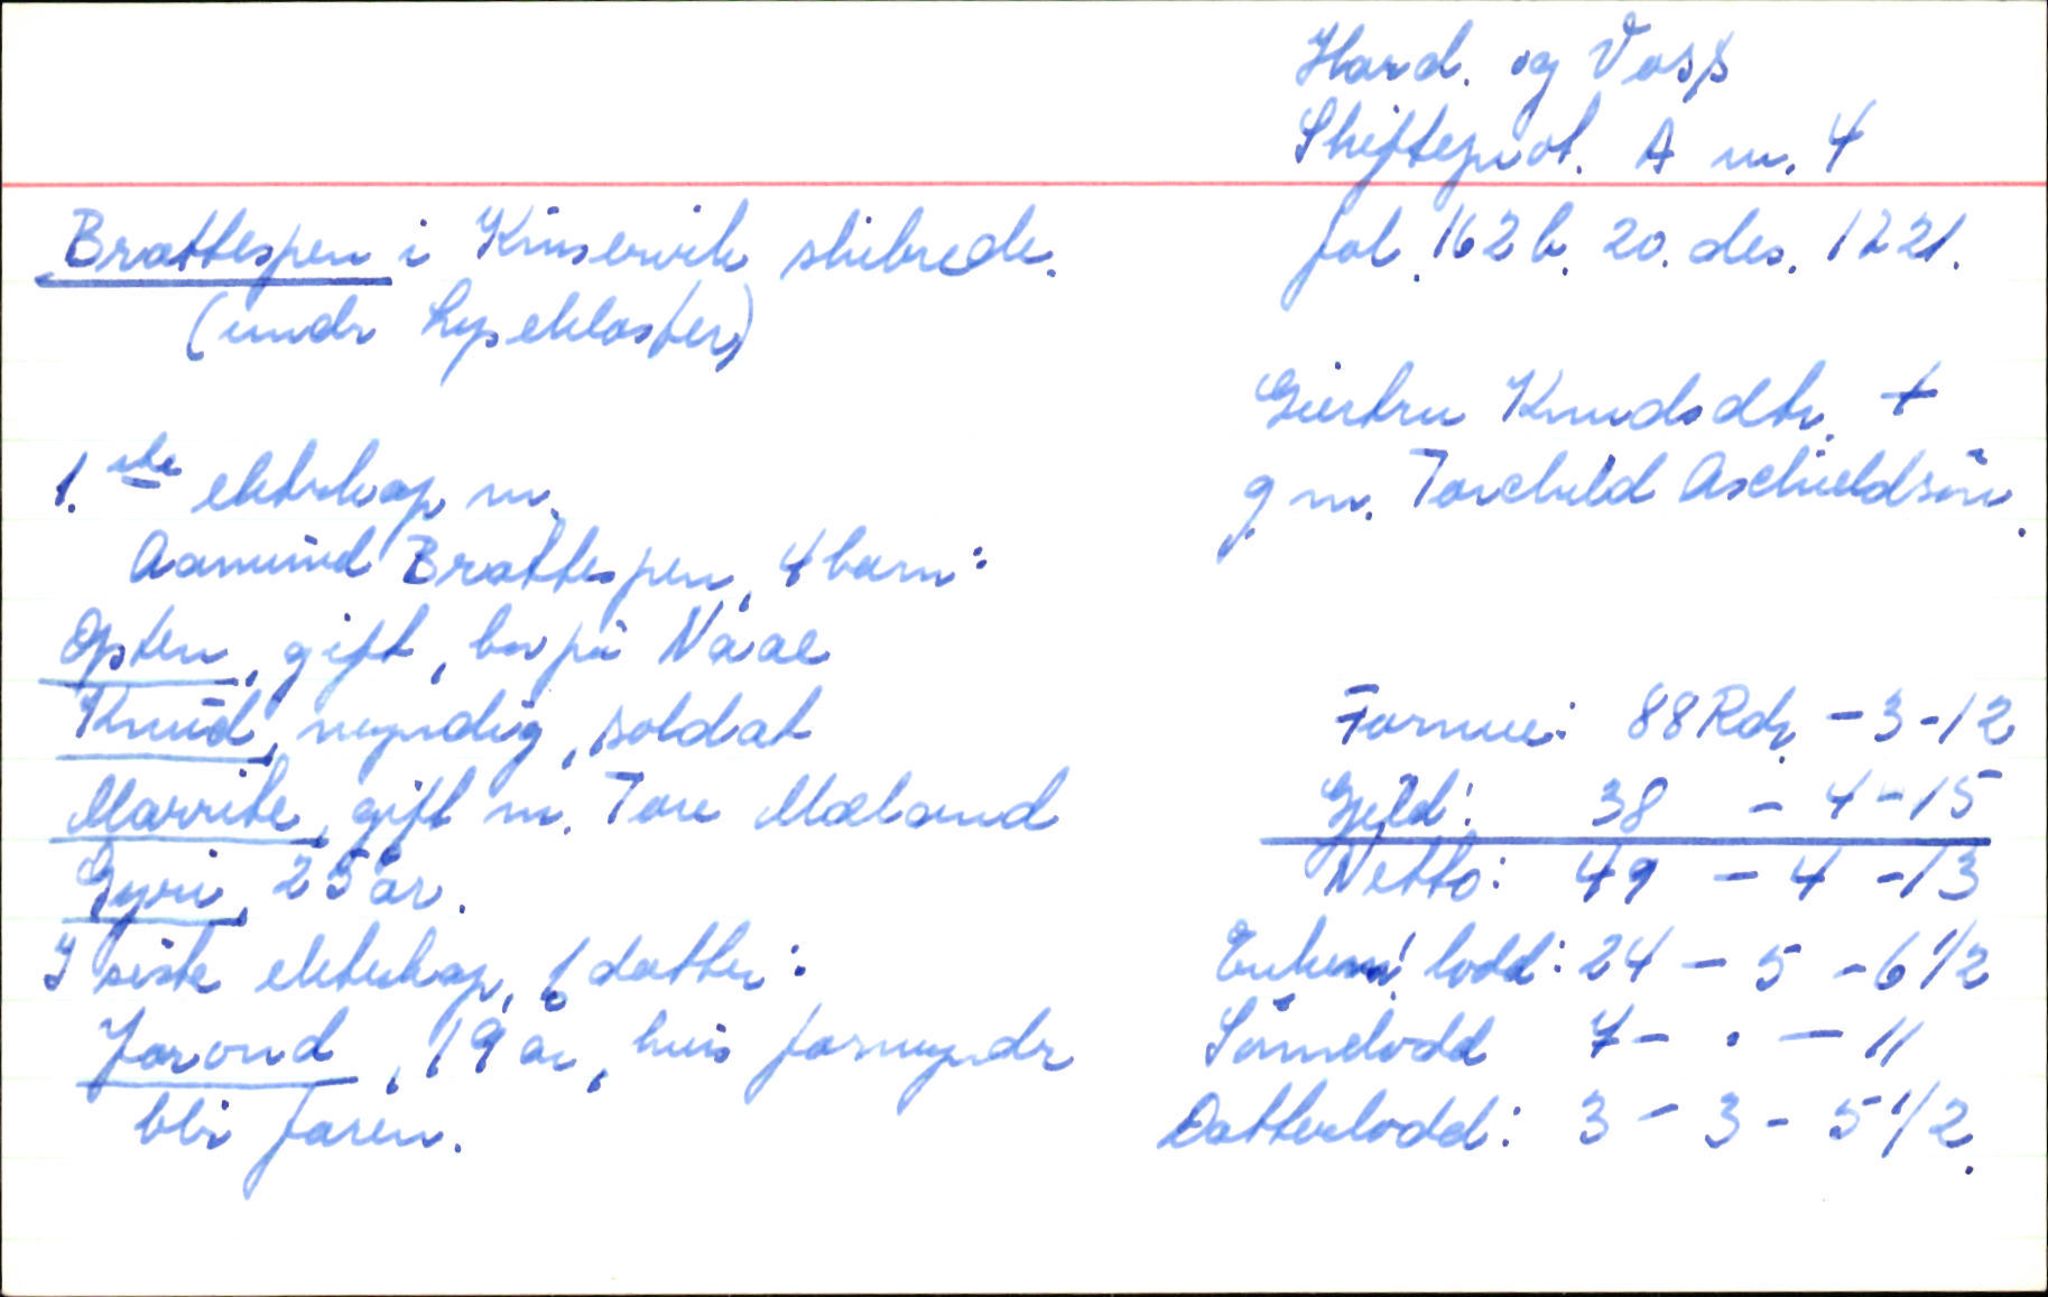 Hard. og Voss
Skifteprot. A nr. 4
fol. 162 b. 20. des. 1721.
Brattespen i Kinservik skibrede.
(undr Lysekloster)
Giertru Knudsdtr. +
g. m. Torchild Aschieldsøn.
1.ste ekteskap m.
Aamund Brattespen, 4 barn:
Opsten, gift, bor på Naae
Knud, myndig, soldat
Marrite, gift m. Tore Mæland
Gyri, 25 år.
I siste ekteskap, 1 datter:
Jorond, 19 år, hvis formyndr
blir faren.
Formue: 88 Rdr. - 3 - 12
Gjeld: 38 - 4 - 15
Netto: 49 - 4 - 13
Enkem. lodd: 24 - 5 - 6 1/2
Sønnelodd 7 - . - 11
Datterlodd: 3 - 3 - 5 1/2.